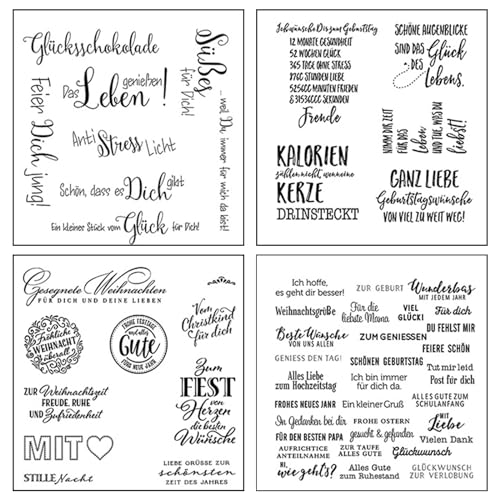 Glücksschokolade
Süßes
für Dich!
Das
Leben
genießen
!
Feier Dich jung!
Anti Stress Licht
... weil Du immer für mich da bist!
Schön, dass es Dich gibt
Ein kleiner Stück vom Glück für Dich!
Ich wünsche Dir zum Geburtstag
12 MONATE GESUNDHEIT
52 WOCHEN GLÜCK
365 TAGE OHNE STRESS
8760 STUNDEN LIEBE
525600 MINUTEN FRIEDEN
& 31536000 SEKUNDEN
Freude
SCHÖNE AUGENBLICKE
SIND DAS Glück
DES
Lebens.
NIMM DIR ZEIT
FÜR DAS
Leben
UND TUE, WAS DU
liebst!
KALORIEN
zählen nicht, wenn eine
KERZE
DRINSTECKT
GANZ LIEBE
Geburtstagswünsche
VON VIEL ZU WEIT WEG!
Gesegnete Weihnachten
FÜR DICH UND DEINE LIEBEN
Fröhliche
WEIHNACHT
überall
FROHE FESTTAGE
und alles
Gute
FÜRS NEUE JAHR
Vom
Christkind
für dich
ZUR Weihnachtszeit
FREUDE, RUHE
UND Zufriedenheit
Zum
FEST
von
Herzen
die besten
Wünsche
MIT
STILLE Nacht
LIEBE GRÜSSE ZUR
SCHÖNSTEN
ZEIT DES JAHRES
Ich hoffe,
es geht dir besser!
ZUR GEBURT
Wunderbar
MIT JEDEM JAHR
Weihnachtsgrüße
Für die
liebste Mama
VIEL
GLÜCK!
Für dich
Beste Wünsche
VON UNS ALLEN
ZUM GENIESSEN
DU FEHLST MIR
FEIERE SCHÖN
GENIESS DEN TAG!
SCHÖNEN GEBURTSTAG
Tut mir leid
Alles Liebe
zum Hochzeitstag
Ich bin immer
für dich da.
Post für dich
FROHES NEUES JAHR
Ein kleiner Gruß
ALLES GUTE ZUM
SCHULANFANG
In Gedanken bei dir
FROHE OSTERN
MIT
Liebe
FÜR DEN BESTEN PAPA
gesucht & gefunden
Vielen Dank
AUFRICHTIGE
ANTEILNAHME
ZUR TAUFE
ALLES GUTE
Glückwunsch
HI,
wie geht's?
Alles Gute
zum Ruhestand
GLÜCKWUNSCH
ZUR VERLOBUNG